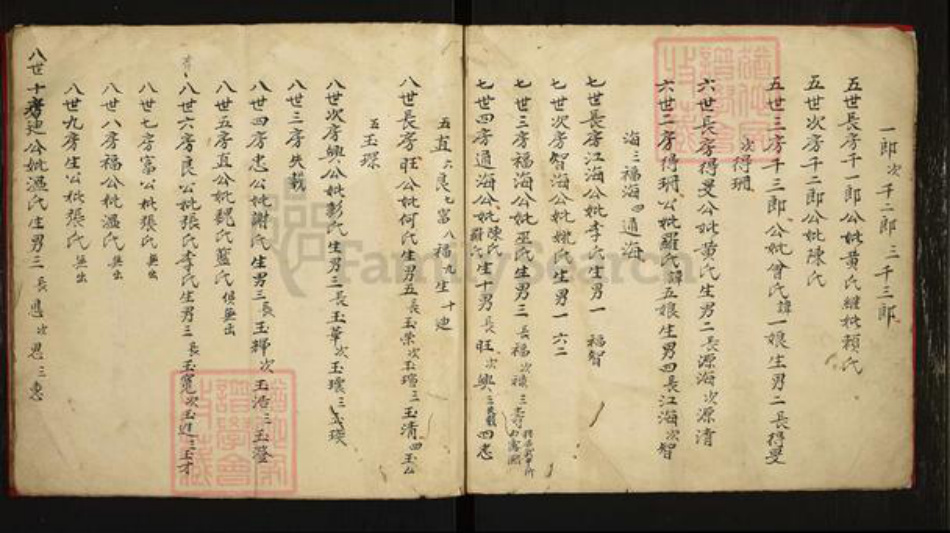 一郎 次千二郎 三千三郎
五世長房千一郎公妣黄氏継妣頼氏
五世次房千二郎公妣陳氏
五世三房千三郎公妣曾氏諱一娘生男二長得旻
次得珊
六世長房得旻公妣黄氏生男二長源海次源清
六世二房得珊公妣羅氏諱五娘生男四長江海次智
海三福海四通海
七世長房江海公妣李氏生男一 福智
七世次房智海公妣 氏生男一六二
七世三房福海公妣巫氏生男三長福次禄三寿
七世四房通海公妣陳氏羅氏生十男長旺次興三失載四忠
五直六良七富八福九生十迪
八世長房旺公妣何氏生男五長玉荣次玉瓊三玉清四玉
五玉琛
八世次房興公妣彭氏生男三長玉華次玉瓊三玉瑛
八世三房失載
八世四房忠公妣謝氏生男三長玉輝次玉浩三玉澄
八世五房直公妣魏氏藍氏俱無出
八世六房良公妣張氏李氏生男三長玉寬次玉近三玉才
八世七房富公妣張氏無出
八世八房福公妣溫氏無出
八世九房生公妣張氏無出
八世十房迪公妣溫氏生男三長 次恩三惠
FamilySearch